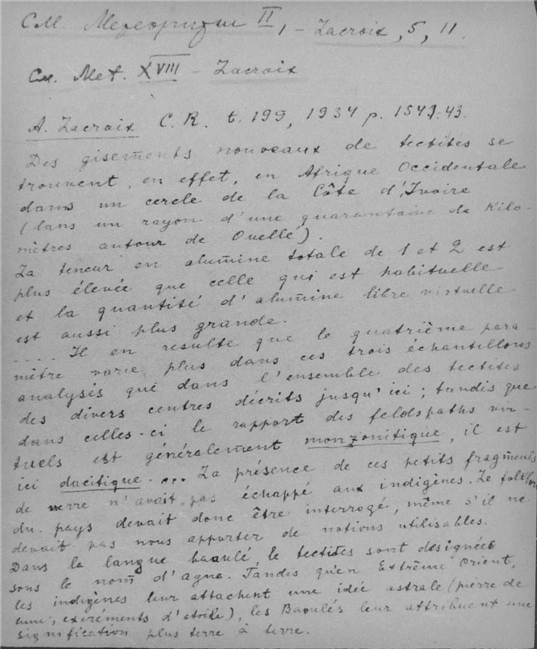 См. Метеоритики II, - Lacroix, 5, 11.
См. Met. XVIII - Lacroix
A. Lacroix C. R. t. 199, 1934 p. 1543.
Des gisements nouveaux de tectites se
trouvent, en effet, en Afrique Occidentale
dans un cercle de la Côte d'Ivoire
(dans un rayon d'une quarantaine de kilo-
mètres autour de Ouellé)
La teneur en alumine totale de 1 et 2 est
plus élevée que celle qui est habituelle
et la quantité d'alumine libre virtuelle
est aussi plus grande.
.... Il en resulte que le quatrième para-
mètre varie plus dans ces trois échantillons
analysés que dans l'ensemble des tectites
des divers centres décrits jusqu'ici; tandis que
dans celles-ci le rapport des feldspaths vir-
tuels est généralement monzonitique, il est
ici dacitique. ... La présence de ces petits fragments
de verre n'avait pas échappé aux indigènes. Le folklore
du pays devait donc être interrogé, même s'il ne
devait pas nous apporter de notions utilisables.
Dans la langue baoulé le tectites sont designées
sous le nom d'agna. Tandis qu'en Extrême Orient,
les indigènes leur attachent une idée astrale (pierre de
lune, exeréments d'etoile), les Baoulés leur attribuent une
signification plus terre à terre.